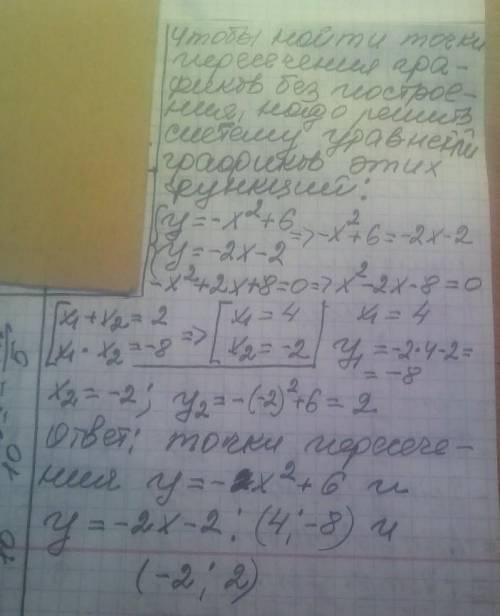 Чтобы найти точки
пересечения гра-
фиков без построе-
ния, надо решить
систему уравнений
графиков этих
функций:
{y = -x² + 6
{y = -2x - 2 => -x² + 6 = -2x - 2
-x² + 2x + 8 = 0 => x² - 2x - 8 = 0
[x₁ + x₂ = 2 => [x₁ = 4 x₁ = 4
[x₁ · x₂ = -8 [x₂ = -2 y₁ = -2·4-2 =
= -8
x₂ = -2; y₂ = -(-2)² + 6 = 2
Ответ: точки пересече-
ния y = -x² + 6 и
y = -2x - 2: (4; -8) и
(-2; 2)